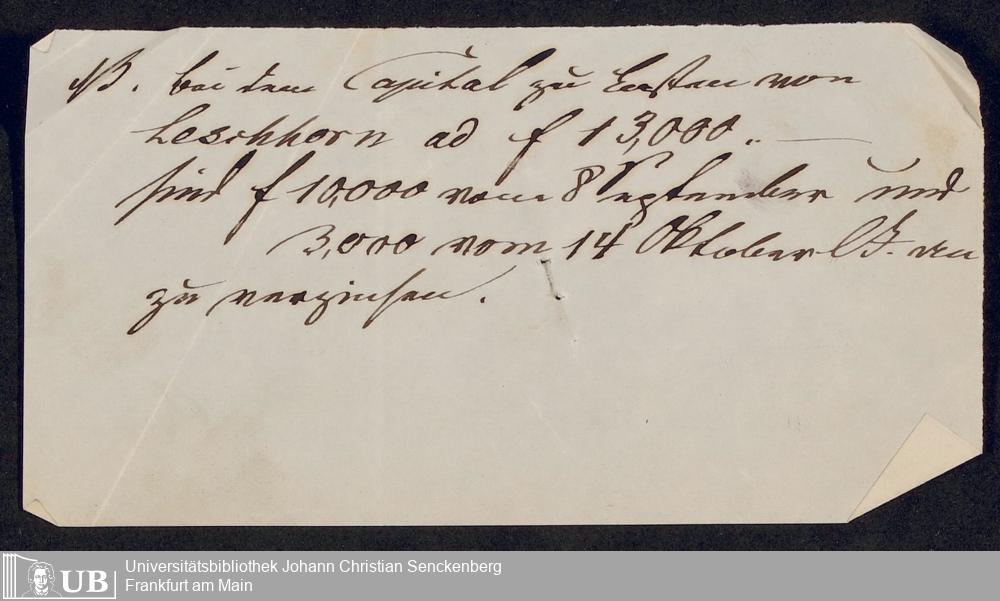 NB. bei dem Capital zu Lasten von
Leschhorn ad f 13,000.. —
sind f 10,000 vom 8 September und
3,000 vom 14 Oktober l. J. an
zu verzinsen.
UB
Universitätsbibliothek Johann Christian Senckenberg
Frankfurt am Main